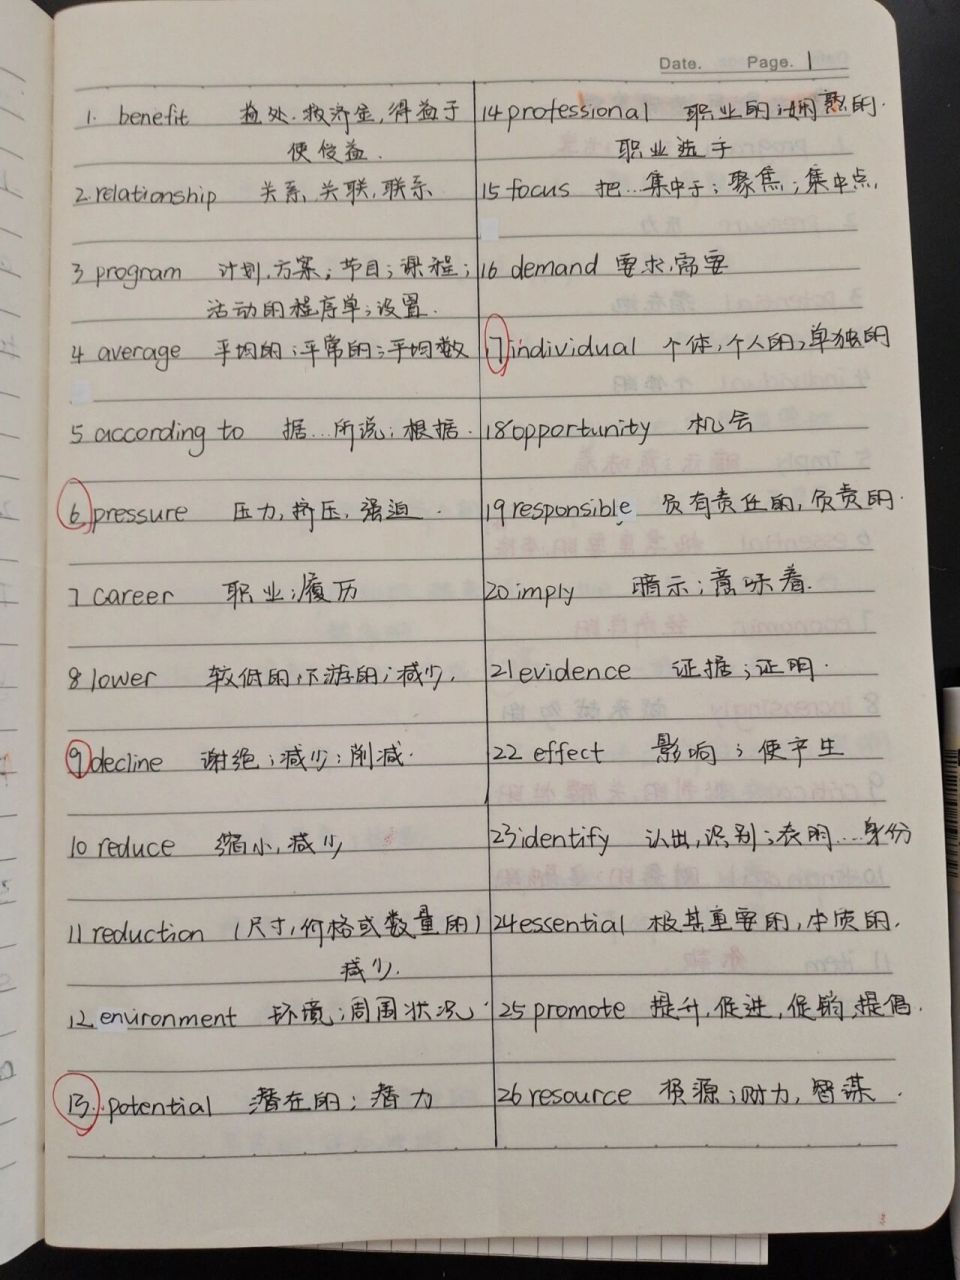 Date. Page. 1
1. benefit 益处.救济金,得益于
使受益.
2.relationship 关系,关联,联系
3 program 计划,方案;节目;课程;
活动的程序单;设置.
4 average 平均的;平常的;平均数
5 according to 据...所说;根据.
6.pressure 压力,挤压,强迫.
7 career 职业;履历
8 lower 较低的,下游的;减少.
9 decline 谢绝;减少;削减.
10 reduce 缩小,减少
11 reduction (尺寸,价格或数量的)
减少.
12 environment 环境;周围状况.
13.potential 潜在的;潜力
14 professional 职业的;娴熟的.
职业选手
15 focus 把...集中于;聚焦;集中点.
16 demand 要求,需要
17 individual 个体,个人的,单独的
18 opportunity 机会
19 responsible 负有责任的,负责的.
20 imply 暗示;意味着.
21 evidence 证据;证明.
22 effect 影响;使产生
23 identify 认出,识别;表明...身份
24 essential 极其重要的,本质的.
25 promote 提升,促进,促销,提倡.
26 resource 资源;财力,智谋.